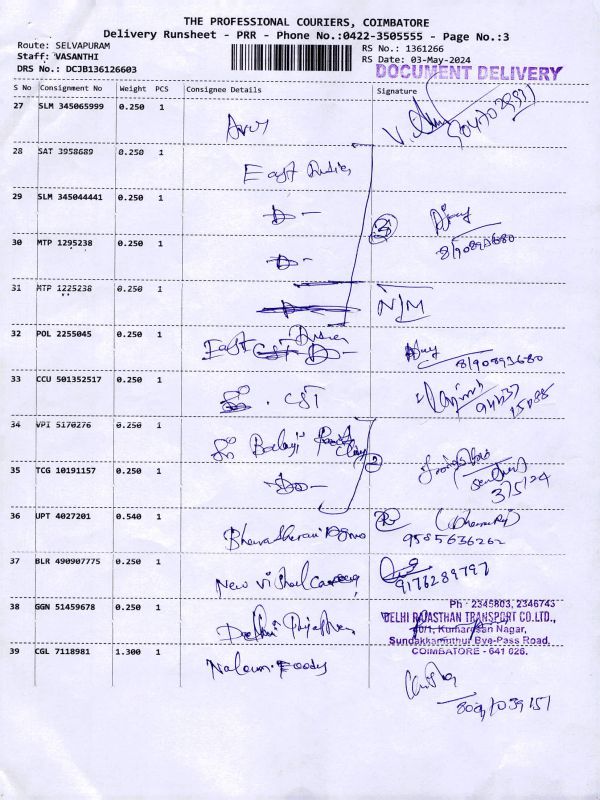 THE PROFESSIONAL COURIERS, COIMBATORE
Delivery Runsheet - PRR - Phone No.:0422-3505555 - Page No.:3
Route: SELVAPURAM
RS No.: 1361266
Staff: VASANTHI
RS Date: 03-May-2024
DRS No.: DCJB136126603
DOCUMENT DELIVERY
S No Consignment No Weight PCS Consignee Details Signature
27 SLM 345065999 0.250 1
28 SAT 3958689 0.250 1 East India
29 SLM 345044441 0.250 1 -D-
8190893680
30 MTP 1295238 0.250 1 -D-
31 MTP 1225238 0.250 1 N/M
32 POL 2255045 0.250 1 East India
8190893680
33 CCU 501352517 0.250 1 CST
34 VPI 5170276 0.250 1 Sri Balaji
35 TCG 10191157 0.250 1 -Do-
3/5/24
36 UPT 4027201 0.540 1
9585636262
37 BLR 490907775 0.250 1 New Vishal
9176289797
38 GGN 51459678 0.250 1
Ph : 2345803, 2346743
DELHI RAJASTHAN TRANSPORT CO.LTD.,
Kumaresan Nagar,
Sundakkamuthur Bye-Pass Road,
COIMBATORE - 641 026.
39 CGL 7118981 1.300 1 Foody